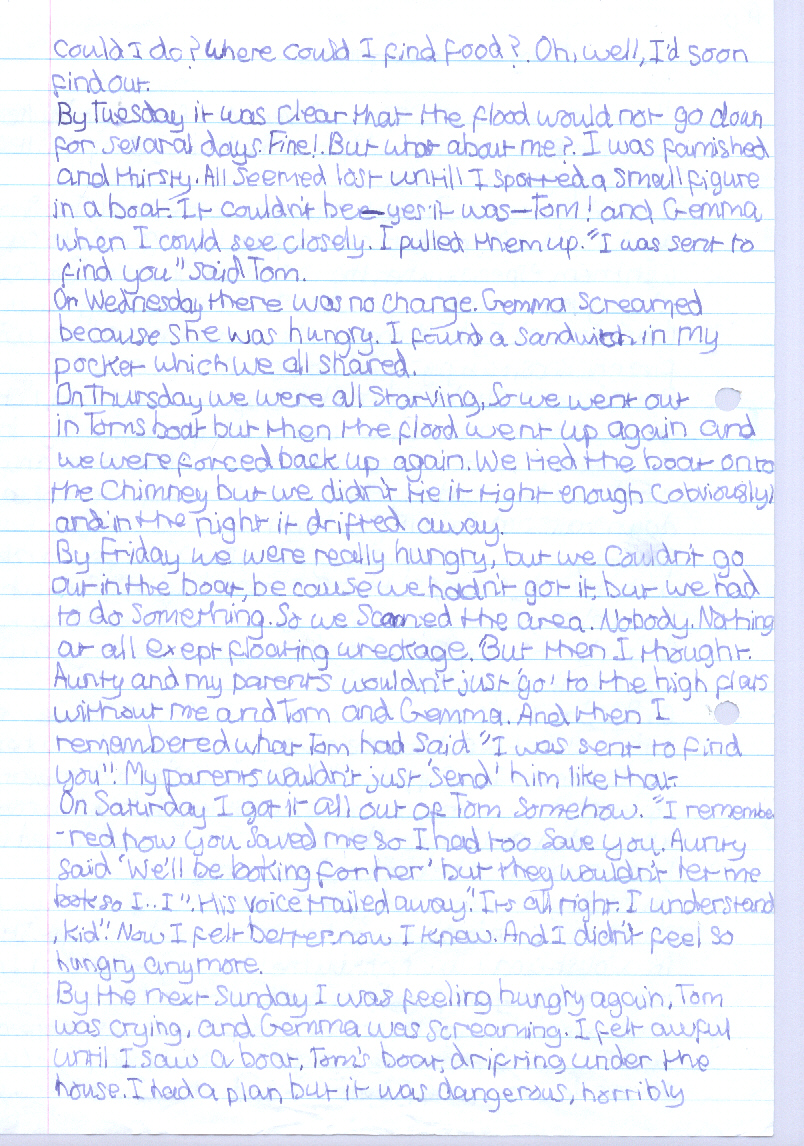 Could I do? Where could I find food? Oh, well, I'd soon
find out.
By Tuesday it was clear that the flood would not go down
for several days. Fine!. But what about me?. I was famished
and thirsty. All seemed lost untill I spotted a small figure
in a boat. It couldn't be—yes it was—Tom! and Gemma
when I could see closely. I pulled them up. "I was sent to
find you" said Tom.
On Wednesday there was no change. Gemma screamed
because she was hungry. I found a sandwich in my
pocket which we all shared.
On Thursday we were all starving, So we went out
in Toms boat but then the flood went up again and
we were forced back up again. We tied the boat onto
the Chimney but we didn't tie it tight enough (obviously)
and in the night it drifted away.
By Friday we were really hungry, but we couldn't go
out in the boat, because we hadn't got it, but we had
to do something. So we Scanned the area. Nobody. Nothing
at all exept floating wreckage. But then I thought.
Aunty and my parents wouldn't just 'go' to the high flats
without me and Tom and Gemma. And then I
remembered what Tom had said "I was sent to find
you"! My parents wouldn't just 'send' him like that.
On Saturday I got it all out of Tom somehow. "I remembe
-red how you saved me so I had too save you. Aunty
said 'We'll be looking for her' but they wouldn't let me
look so I..I". His voice trailed away. "It's all right. I understand
, kid"! Now I felt better now I knew. And I didn't feel so
hungry anymore.
By the next Sunday I was feeling hungry again, Tom
was crying, and Gemma was screaming. I felt awful
until I saw a boat, Tom's boat, drifting under the
house. I had a plan, but it was dangerous, horribly